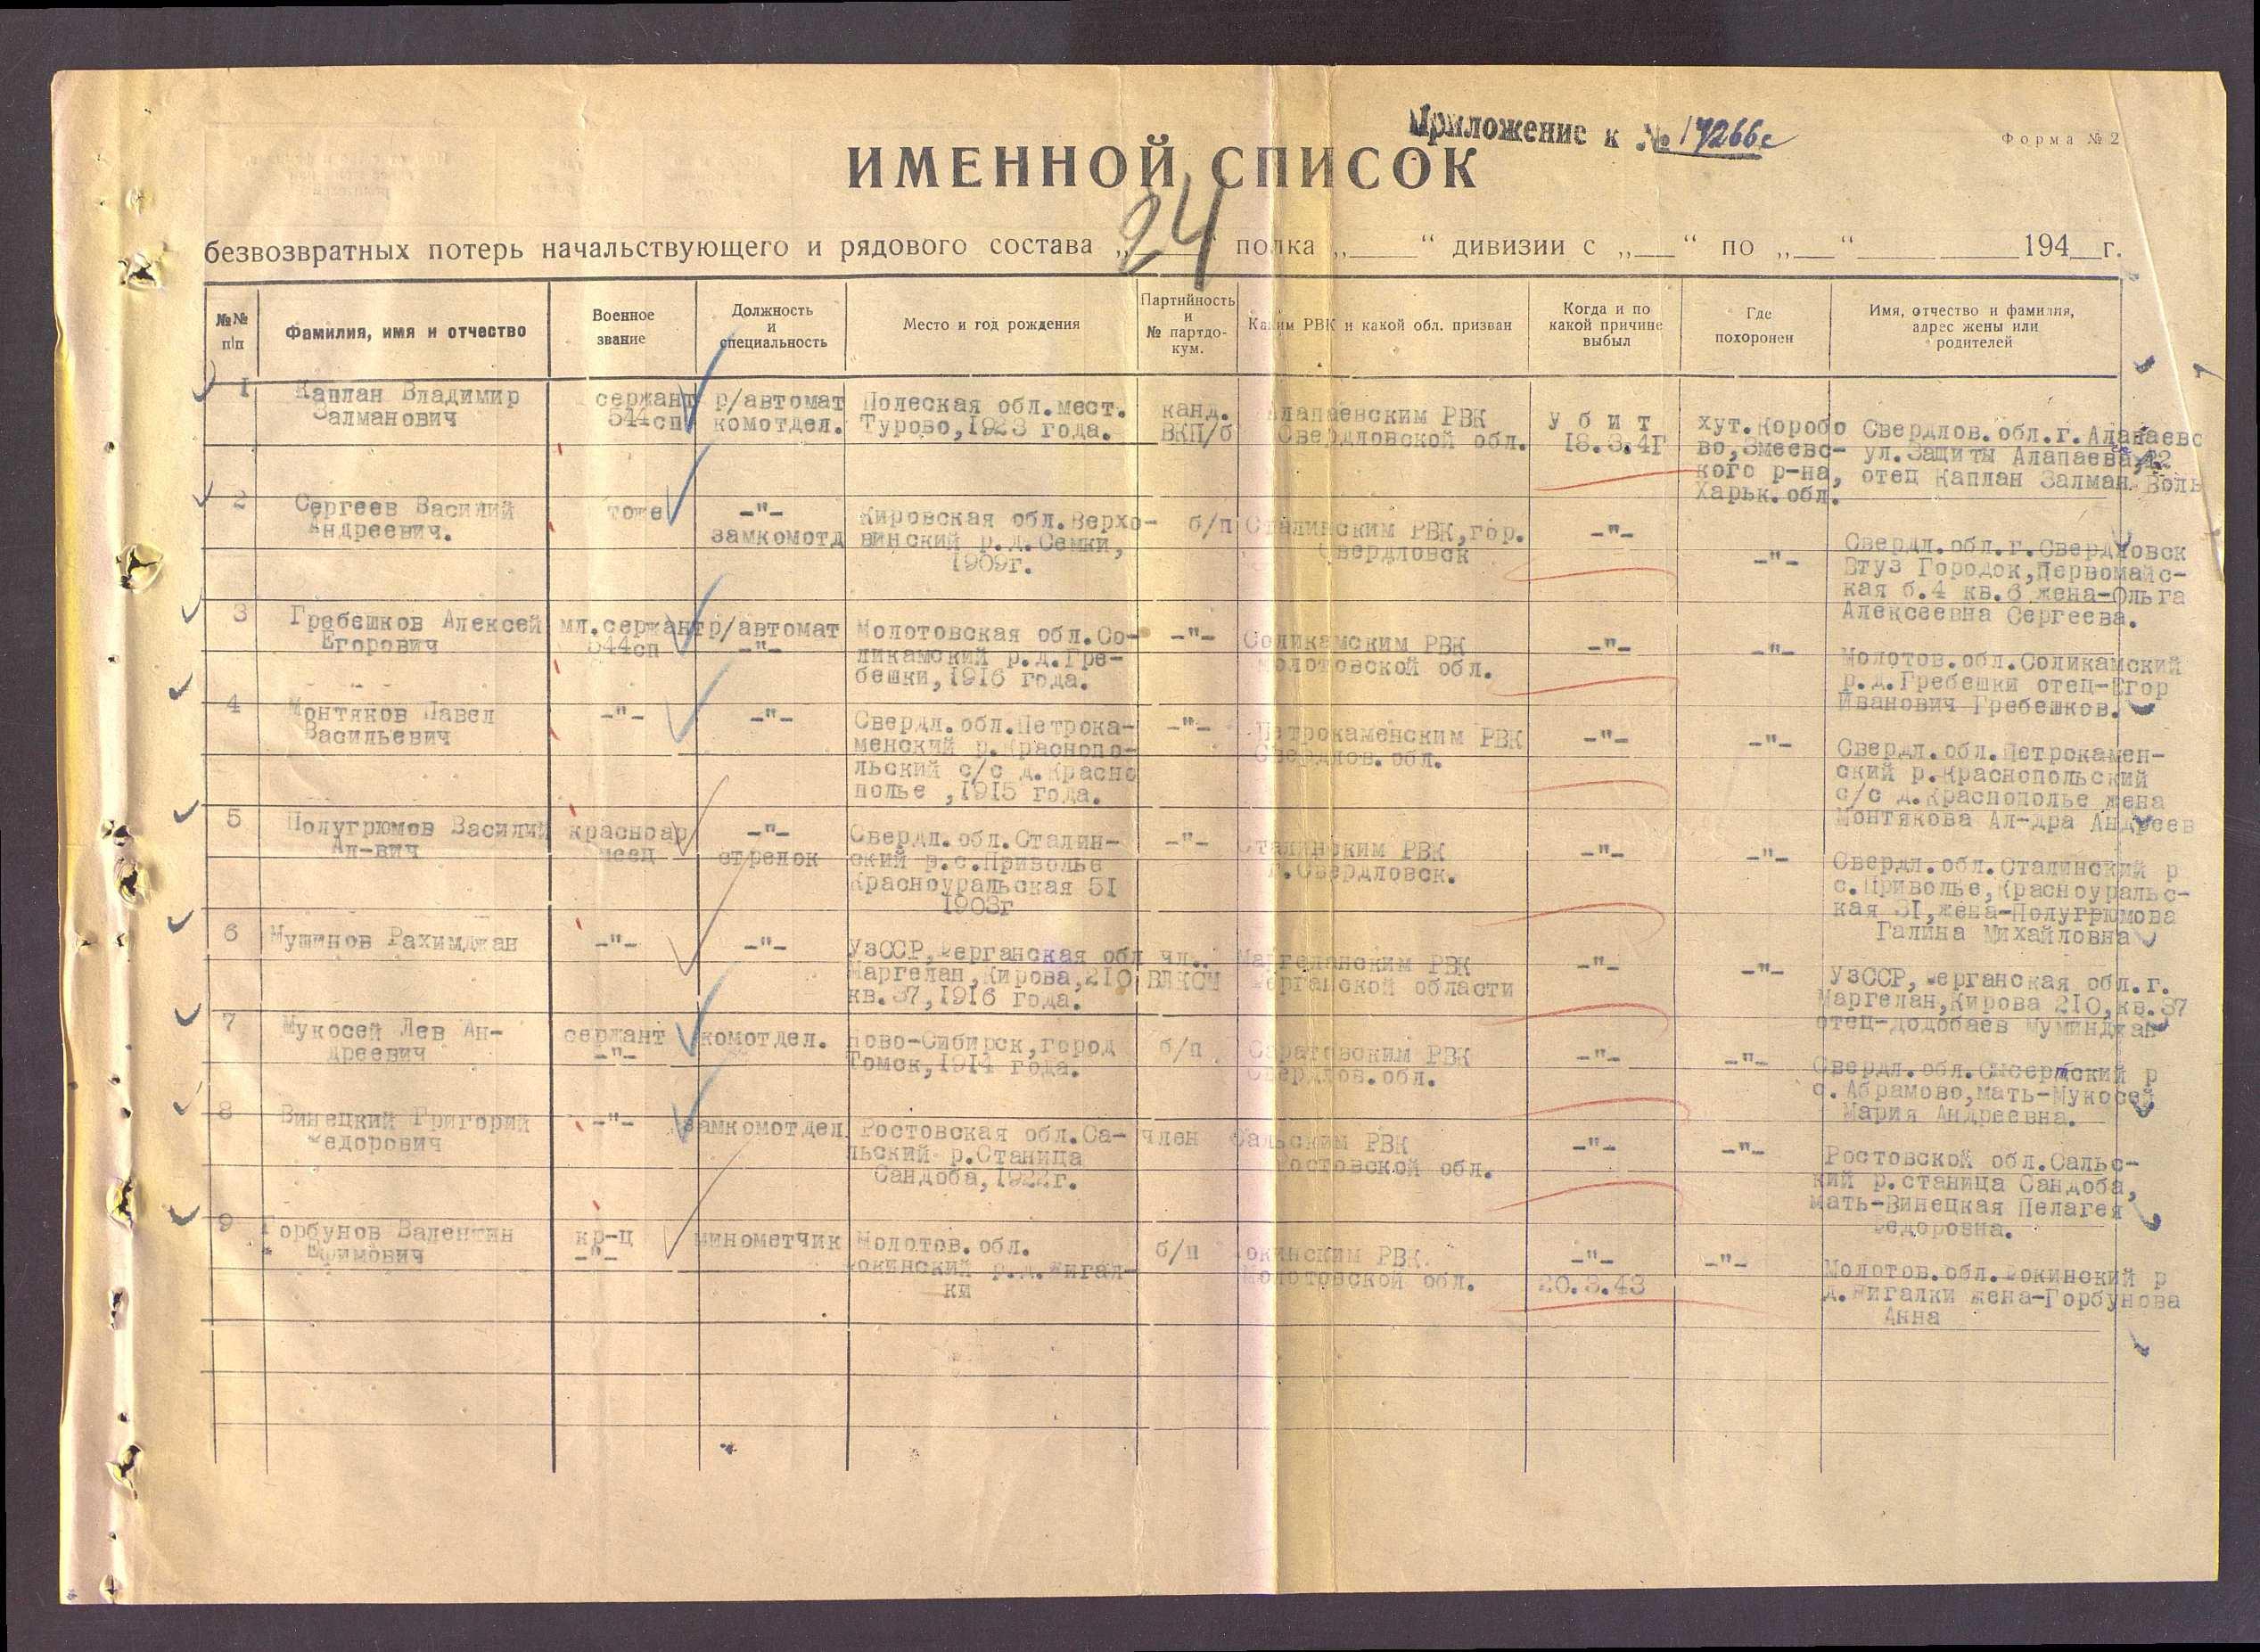 Приложение к № 17266с
Форма № 2
ИМЕННОЙ СПИСОК
24
безвозвратных потерь начальствующего и рядового состава „ “ полка „ “ дивизии с „ “ по „ “ 194 г.
№№ п/п
Фамилия, имя и отчество
Военное звание
Должность и специальность
Место и год рождения
Партийность и № партдо-кум.
Каким РВК и какой обл. призван
Когда и по какой причине выбыл
Где похоронен
Имя, отчество и фамилия, адрес жены или родителей
1
Каплан Владимир
Залманович
сержант
544сп
р/автомат
комотдел.
Полеская обл.мест.
Турово,1923 года.
канд.
ВКП/б
Алапаевским РВК
Свердловской обл.
У б и т
18.3.4Г
хут.Коробо
во,Змеевс-
кого р-на,
Харьк.обл.
Свердлов.обл.г.Алапаевс
ул.Защиты Алапаева,
отец Каплан Залман Воль
2
Сергеев Василий
Андреевич.
тоже
-"-
замкомотд
Кировская обл.Верхо-
винский р.д.Семки,
1909г.
б/п
Сталинским РВК,гор.
Свердловск
-"-
-"-
Свердл.обл.г.Свердловск
Втуз Городок,Первомайс-
кая б.4 кв.6 жена-Ольга
Алексеевна Сергеева.
3
Гребешков Алексей
Егорович
мл.сержант
544сп
р/автомат
-"-
Молотовская обл.Со-
ликамский р.д.Гре-
бешки,1916 года.
-"-
Соликамским РВК
Молотовской обл.
-"-
-"-
Молотов.обл.Соликамский
р.д.Гребешки отец-Егор
Иванович Гребешков.
4
Монтяков Павел
Васильевич
-"-
-"-
Свердл.обл.Петрока-
менский р.Краснопо-
льский с/с д.Красно
полье ,1915 года.
-"-
Петрокаменским РВК
Свердлов.обл.
-"-
-"-
Свердл.обл.Петрокамен-
ский р.Краснопольский
с/с д.Краснополье жена
Монтякова Ал-дра Андреев
5
Полугрюмов Василий
Ал-вич
красноар
меец
-"-
стрелок
Свердл.обл.Сталин-
ский р.с.Приволье
Красноуральская 51
1903г
-"-
Сталинским РВК
г.Свердловск.
-"-
-"-
Свердл.обл.Сталинский р
с.Приволье,Красноуральс-
кая 31,жена-Полугрюмова
Галина Михайловна
6
Мушинов Рахимджан
-"-
-"-
УзССР,Ферганская обл
Маргелан,Кирова,210
кв.37,1916 года.
чл..
ВЛКСМ
Маргеланским РВК
Ферганской области
-"-
-"-
УзССР,Ферганская обл.г.
Маргелан,Кирова 210,кв.37
отец-Додобаев Муминджан
7
Мукосей Лев Ан-
дреевич
сержант
-"-
комотдел.
Ново-Сибирск,город
Томск,1914 года.
б/п
Саратовским РВК
Свердлов.обл.
-"-
-"-
Свердл.обл.Сысертский р
с.Абрамово,мать-Мукосей
Мария Андреевна.
8
Винецкий Григорий
Федорович
-"-
замкомотдел
Ростовская обл.Са-
льский р.Станица
Сандоба,1922г.
член
Сальским РВК
Ростовской обл.
-"-
-"-
Ростовской обл.Сальс-
кий р.станица Сандоба,
мать-Винецкая Пелагея
Федоровна.
9
Горбунов Валентин
Ефимович
кр-ц
-"-
минометчик
Молотов.обл.
Фокинский р.д.Жигал-
ки
б/п
Фокинским РВК.
Молотовской обл.
-"-
20.3.43
-"-
Молотов.обл.Фокинский р
д.Жигалки жена-Горбунова
Анна